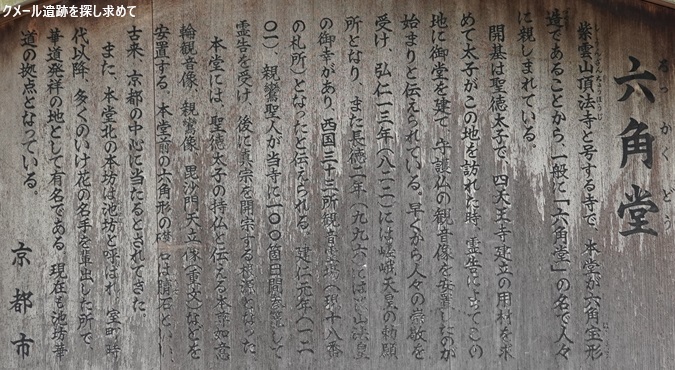 クメール遺跡を探し求めて
六角堂
ろっかくどう
紫雲山頂法寺と号する寺で、本堂が六角宝形
造であることから、一般に「六角堂」の名で人々
に親しまれている。
開基は聖徳太子で、四天王寺建立の用材を求
めて太子がこの地を訪れた時、霊告によってこの
地に御堂を建て、守護仏の観音像を安置したのが
始まりと伝えられている。早くから人々の崇敬を
受け、弘仁一三年(八二二)には嵯峨天皇の勅願
所となり、また長徳二年(九九六)には花山法皇
の御幸があり、西国三十三所観音霊場(現十八番
の札所)となったと伝えられる。建仁元年(一二
〇一)、親鸞聖人が当寺に一〇〇箇日間参籠して
霊告を受け、後に真宗を開宗する根源となった
本堂には、聖徳太子の持仏と伝える本尊如意
輪観音像、親鸞像、毘沙門天立像(重文)などを
安置する。本堂前の六角形の礎石は臍石とい
古来、京都の中心に当たるとされてきた
また、本堂北の本坊は池坊と呼ばれ、室町時
代以降、多くのいけ花の名手を輩出した所で、
華道発祥の地として有名である。現在も池坊華
道の拠点となっている。
京都市